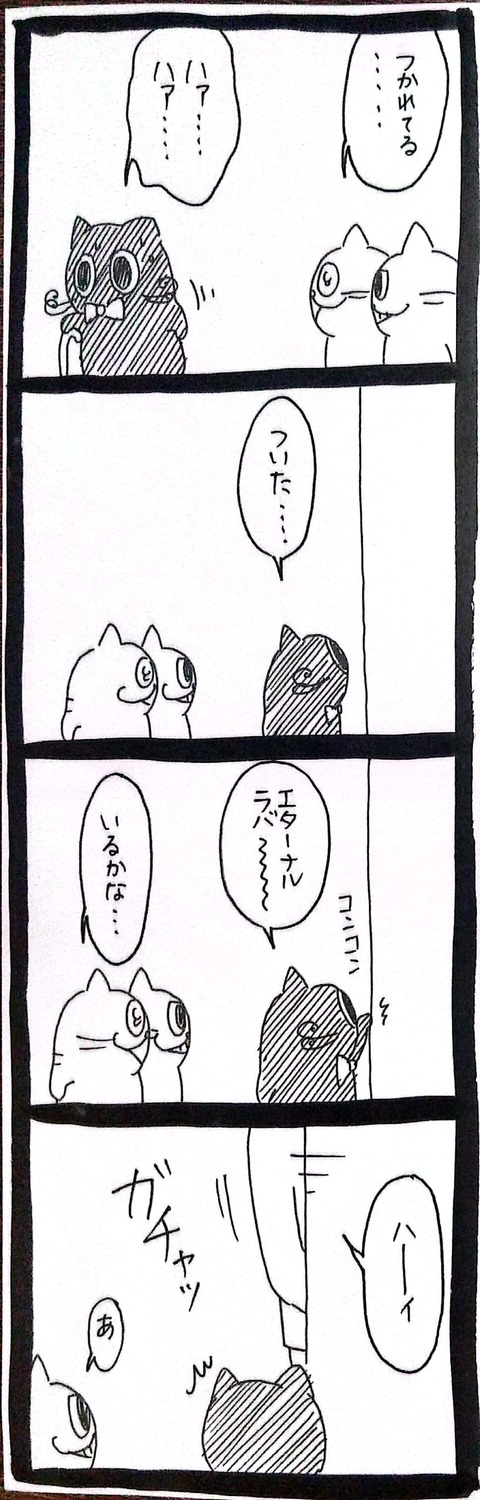 つかれてる
……
ハァ……
ハァ……
ついた……
エターナル
ラバ〜〜〜〜
コンコン
いるかな…
ハーイ
ガチャッ
あ